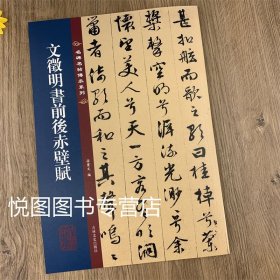 甚扣舷而歌之歌曰桂棹兮蘭
槳擊空明兮泝流光渺渺兮余
懷望美人兮天一方客有吹洞
簫者倚歌而和之其聲嗚嗚
名碑名帖傳承系列
文徵明書前後赤壁賦
吉林文史出版社
悦图图书专营店